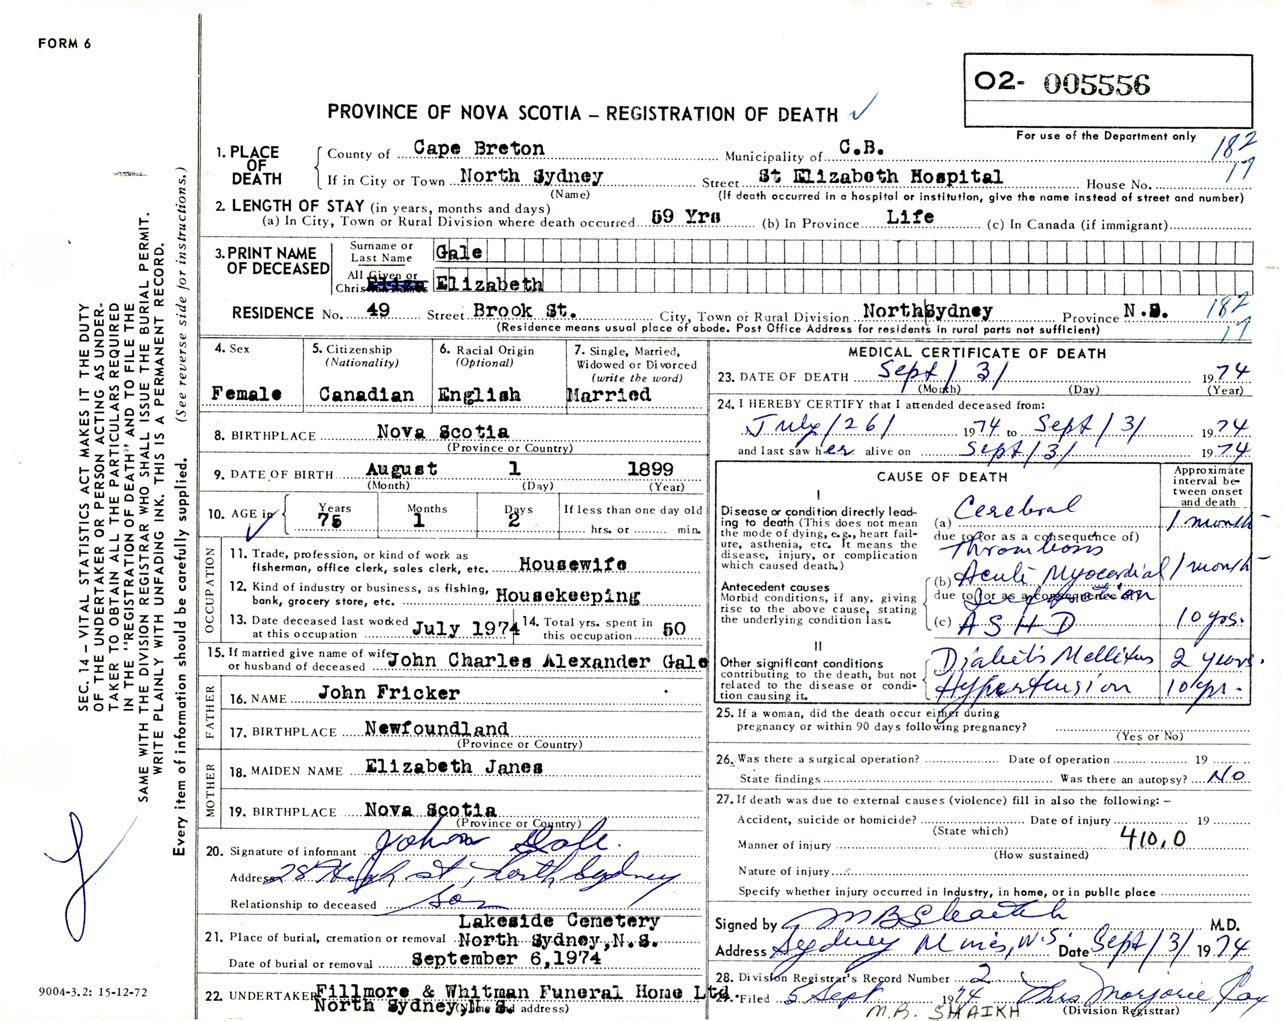 FORM 6
O2- 005556
PROVINCE OF NOVA SCOTIA – REGISTRATION OF DEATH
For use of the Department only
182
17
1. PLACE OF DEATH
County of Cape Breton Municipality of C.B.
If in City or Town North Sydney Street St Elizabeth Hospital House No.
(Name) (If death occurred in a hospital or institution, give the name instead of street and number)
2. LENGTH OF STAY (in years, months and days)
(a) In City, Town or Rural Division where death occurred 59 Yrs (b) In Province Life (c) In Canada (if immigrant)
3. PRINT NAME OF DECEASED
Surname or Last Name Gale
All Given or Christian Names Elizabeth
RESIDENCE No. 49 Street Brook St. City, Town or Rural Division North Sydney Province N.S.
(Residence means usual place of abode. Post Office Address for residents in rural parts not sufficient)
182
17
4. Sex
Female
5. Citizenship
(Nationality)
Canadian
6. Racial Origin
(Optional)
English
7. Single, Married,
Widowed or Divorced
(write the word)
Married
8. BIRTHPLACE Nova Scotia
(Province or Country)
9. DATE OF BIRTH August 1 1899
(Month) (Day) (Year)
10. AGE in
Years Months Days If less than one day old
75 1 2 hrs. or min.
OCCUPATION
11. Trade, profession, or kind of work as
fisherman, office clerk, sales clerk, etc. Housewife
12. Kind of industry or business, as fishing,
bank, grocery store, etc. Housekeeping
13. Date deceased last worked
at this occupation July 1974
14. Total yrs. spent in
this occupation 50
15. If married give name of wife
or husband of deceased John Charles Alexander Gale
FATHER
16. NAME John Fricker
17. BIRTHPLACE Newfoundland
(Province or Country)
MOTHER
18. MAIDEN NAME Elizabeth Janes
19. BIRTHPLACE Nova Scotia
(Province or Country)
20. Signature of informant John Gale.
Address 28 High st, North Sydney
Relationship to deceased son
21. Place of burial, cremation or removal Lakeside Cemetery
North Sydney, N.S.
Date of burial or removal September 6, 1974
22. UNDERTAKER Fillmore & Whitman Funeral Home Ltd.
North Sydney, N.S.
(Name and address)
MEDICAL CERTIFICATE OF DEATH
23. DATE OF DEATH Sept / 3 / 1974
(Month) (Day) (Year)
24. I HEREBY CERTIFY that I attended deceased from:
July / 26 / 1974 to Sept / 3 / 1974
and last saw her alive on Sept / 3 / 1974
CAUSE OF DEATH
Approximate
interval be-
tween onset
and death
I
Disease or condition directly lead-
ing to death (This does not mean
the mode of dying, e.g., heart fail-
ure, asthenia, etc. It means the
disease, injury, or complication
which caused death.)
(a) Cerebral 1 month
due to (or as a consequence of)
Thrombosis
Antecedent causes
Morbid conditions, if any, giving
rise to the above cause, stating
the underlying condition last.
(b) Acute Myocardial 1 month
due to (or as a consequence of)
Infarction
(c) ASHD 10 yrs.
II
Other significant conditions
contributing to the death, but not
related to the disease or condi-
tion causing it.
Diabetis Mellitus 2 years.
Hypertension 10 yr.
25. If a woman, did the death occur either during
pregnancy or within 90 days following pregnancy?
(Yes or No)
26. Was there a surgical operation? Date of operation 19
State findings Was there an autopsy? NO
27. If death was due to external causes (violence) fill in also the following: –
Accident, suicide or homicide? Date of injury 19
(State which)
410,0
Manner of injury
(How sustained)
Nature of injury
Specify whether injury occurred in industry, in home, or in public place
Signed by MB Shaikh M.D.
Address Sydney Mines, N.S. Date Sept / 3 / 1974
28. Division Registrar's Record Number 2
29. Filed 5 Sept 1974 Mrs Marjorie Cox
(Division Registrar)
M.B. SHAIKH
SEC. 14 – VITAL STATISTICS ACT MAKES IT THE DUTY
OF THE UNDERTAKER OR PERSON ACTING AS UNDER-
TAKER TO OBTAIN ALL THE PARTICULARS REQUIRED
IN THE "REGISTRATION OF DEATH" AND TO FILE THE
SAME WITH THE DIVISION REGISTRAR WHO SHALL ISSUE THE BURIAL PERMIT.
WRITE PLAINLY WITH UNFADING INK. THIS IS A PERMANENT RECORD.
Every item of information should be carefully supplied. (See reverse side for instructions.)
9004-3.2: 15-12-72